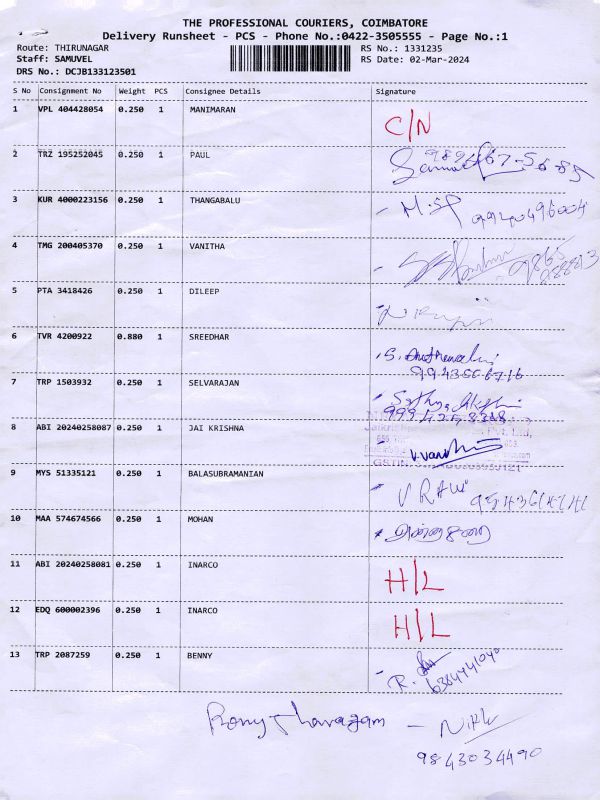 THE PROFESSIONAL COURIERS, COIMBATORE
Delivery Runsheet - PCS - Phone No.:0422-3505555 - Page No.:1
Route: THIRUNAGAR RS No.: 1331235
Staff: SAMUVEL RS Date: 02-Mar-2024
DRS No.: DCJB133123501
S No Consignment No Weight PCS Consignee Details Signature
1 VPL 404428054 0.250 1 MANIMARAN C/N
2 TRZ 195252045 0.250 1 PAUL
3 KUR 4000223156 0.250 1 THANGABALU 9940496004
4 TMG 200405370 0.250 1 VANITHA
5 PTA 3418426 0.250 1 DILEEP
6 TVR 4200922 0.880 1 SREEDHAR
7 TRP 1503932 0.250 1 SELVARAJAN
8 ABI 20240258087 0.250 1 JAI KRISHNA
9 MYS 51335121 0.250 1 BALASUBRAMANIAN V RAVI
10 MAA 574674566 0.250 1 MOHAN
11 ABI 20240258081 0.250 1 INARCO H/L
12 EDQ 600002396 0.250 1 INARCO H/L
13 TRP 2087259 0.250 1 BENNY R.
6384441040
9843034490